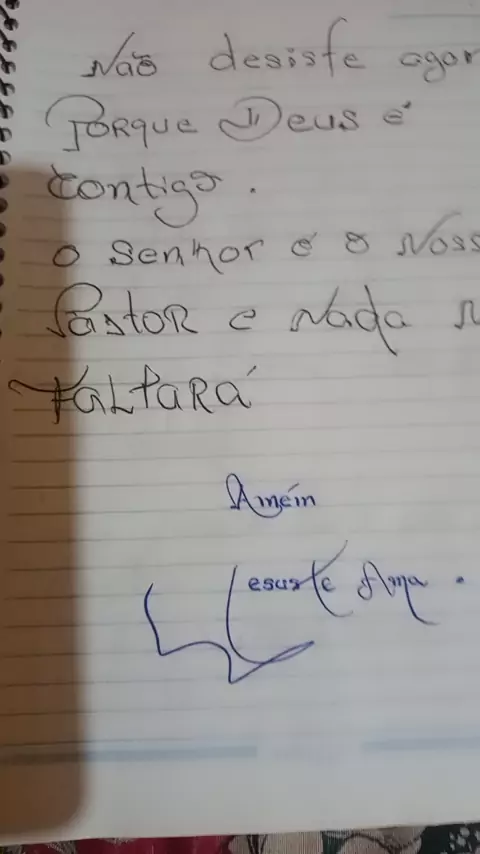 Não desiste agor
Porque Deus é
contigo.
o senhor é o Noss
Pastor e Nada n
FaLtaRá
Amém
Jesus te Ama.